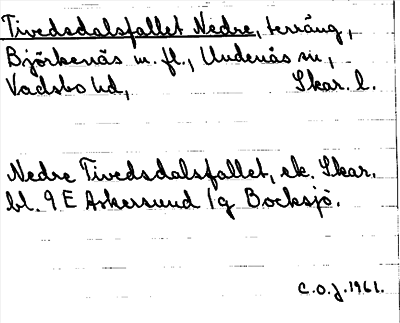 Tivedsdalsfallet Nedre, terräng,
Björkenäs m. fl., Undenäs sn,
Vadsbo hd, Skar. l.
Nedre Tivedsdalsfallet, ek. Skar.
bl. 9 E Askersund /g Bocksjö.
C.O.J. 1961.